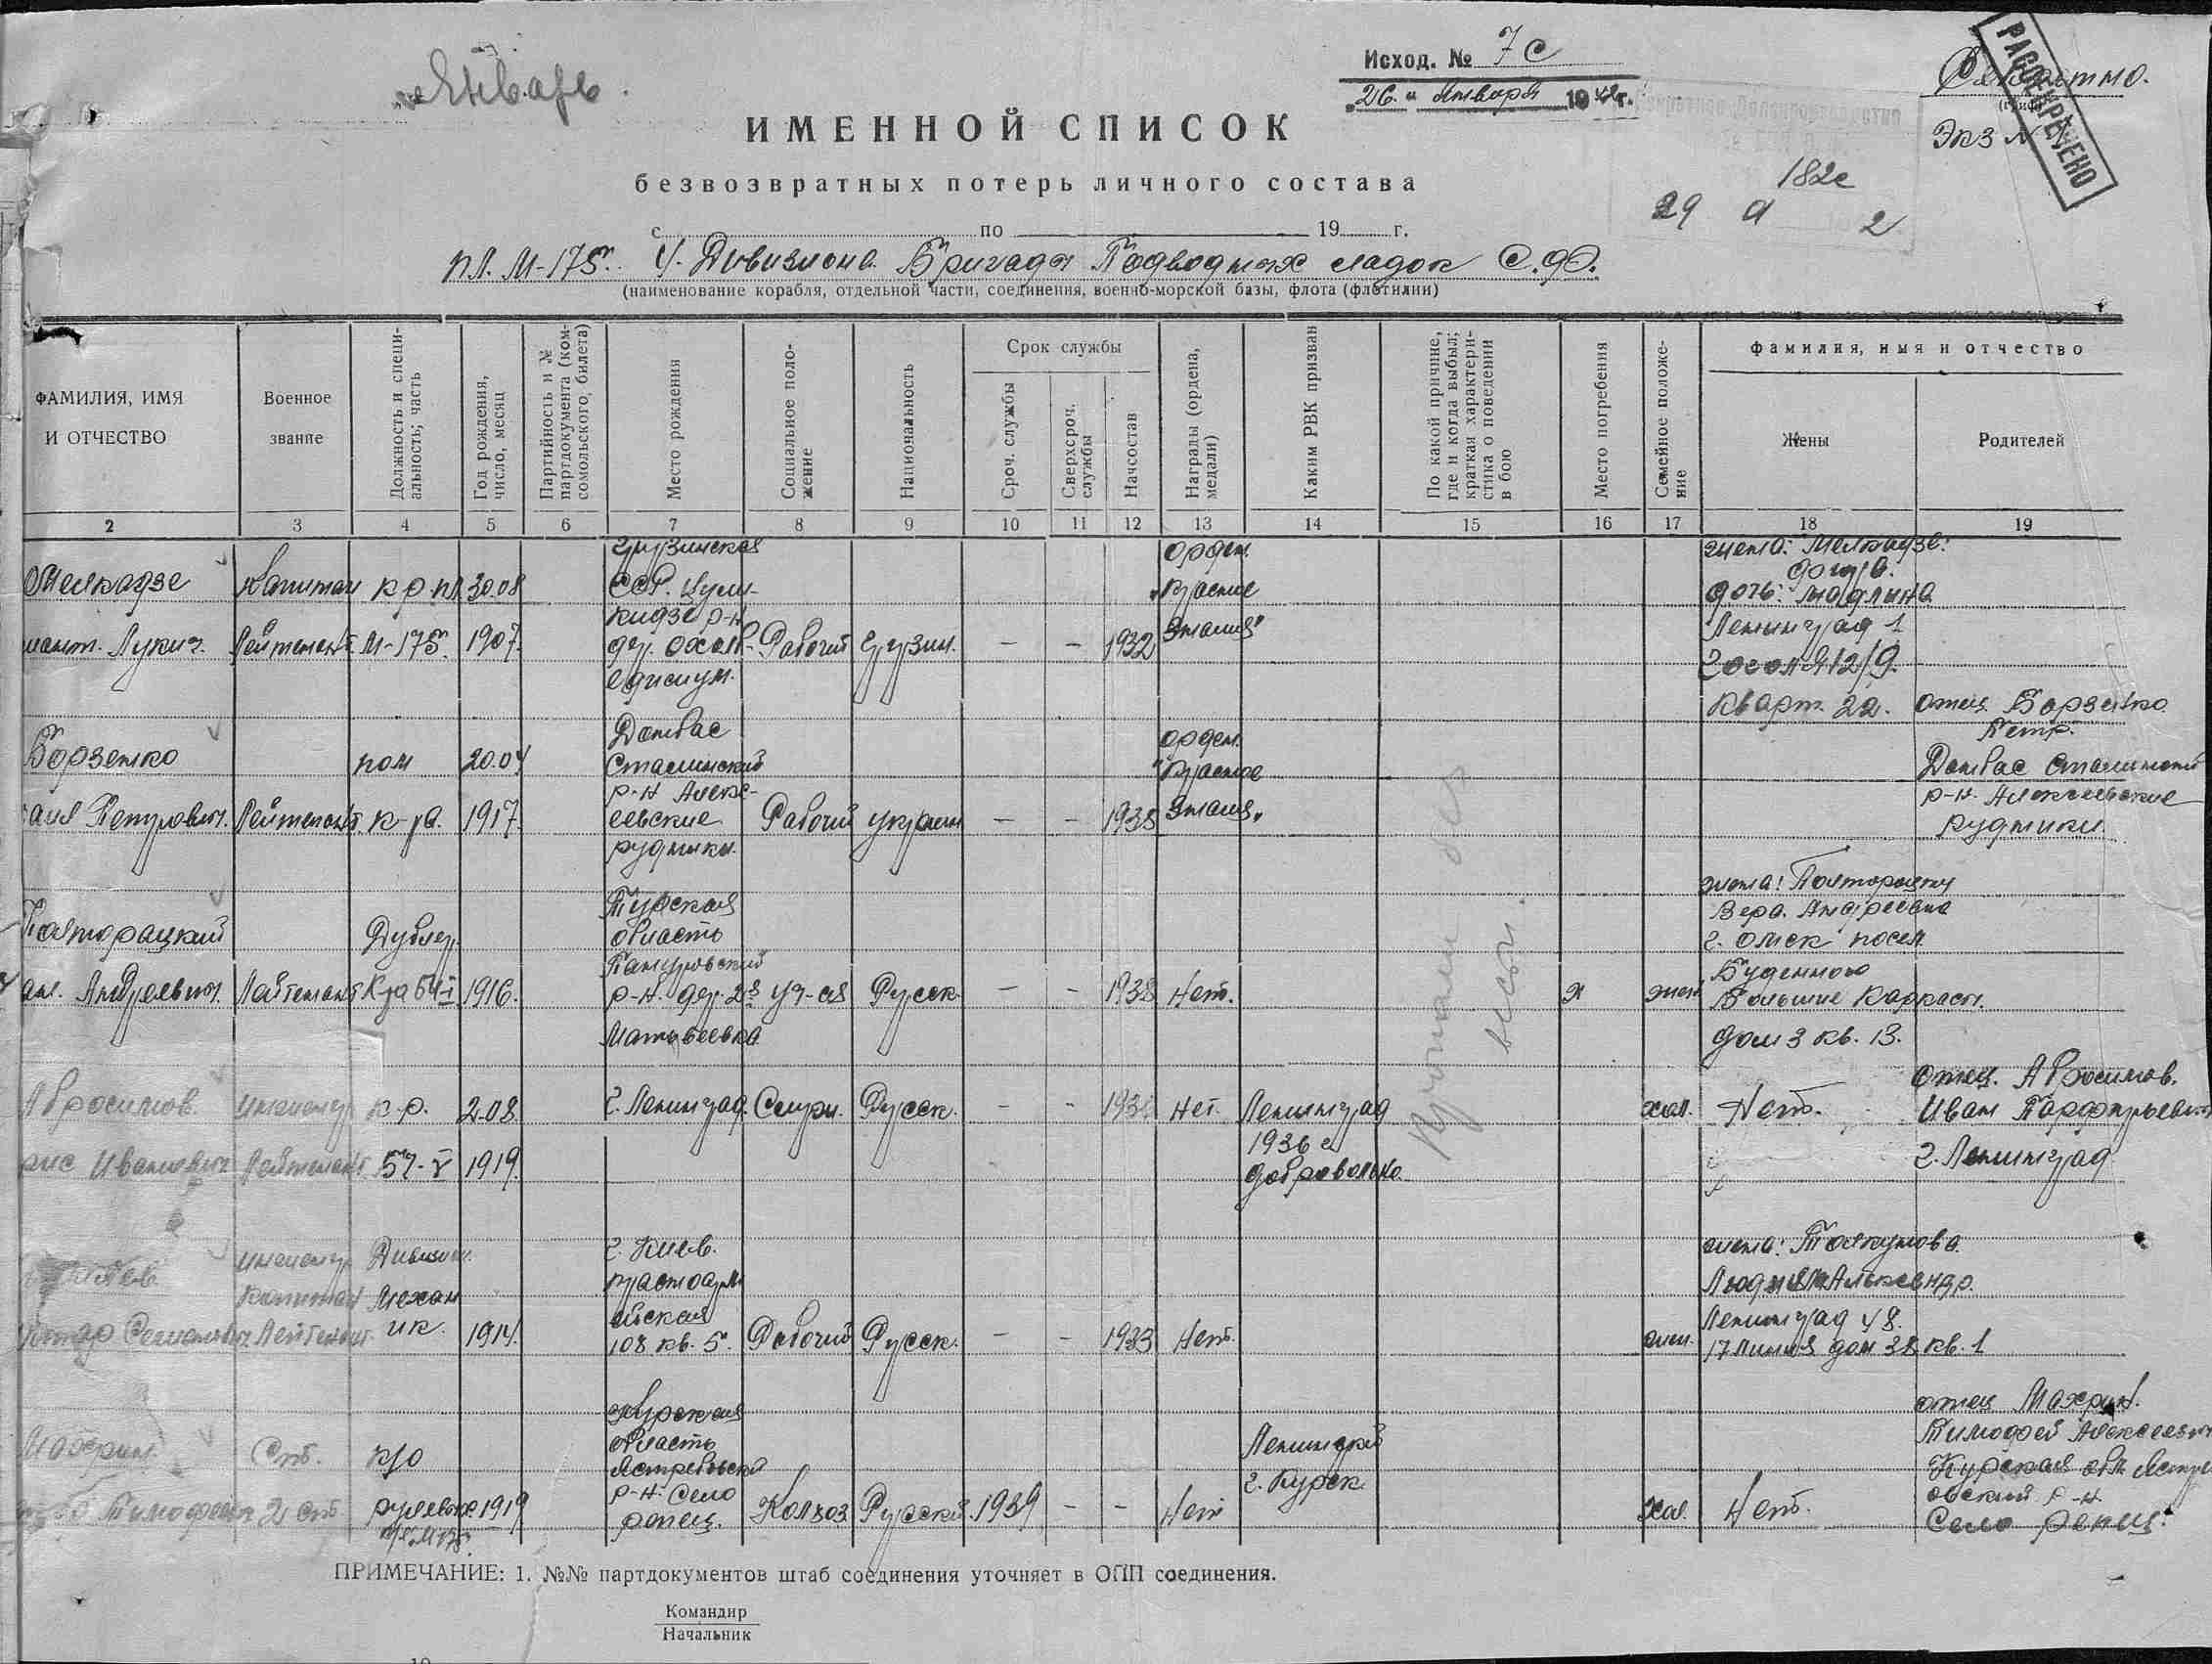 Январь.
Исход. № 7с
"26" Января 1942г.
Секретно.
(гриф)
Экз №
РАССЕКРЕЧЕНО
ИМЕННОЙ СПИСОК
безвозвратных потерь личного состава
182с
29 2
с по 19 г.
пл. М-175. 4. Дивизиона Бригады Подводных лодок С.Ф.
(наименование корабля, отдельной части, соединения, военно-морской базы, флота (флотилии)
ФАМИЛИЯ, ИМЯ
И ОТЧЕСТВО
Военное
звание
Должность и специ-
альность; часть
Год рождения,
число, месяц
Партийность и №
партдокумента (ком-
сомольского, билета)
Место рождения
Социальное поло-
жение
Национальность
Срок службы
Сроч. службы
Сверхсроч.
службы
Начсостав
Награды (ордена,
медали)
Каким РВК призван
По какой причине,
где и когда выбыл;
краткая характери-
стика о поведении
в бою
Место погребения
Семейное положе-
ние
фамилия, имя и отчество
Жены
Родителей
2 3 4 5 6 7 8 9 10 11 12 13 14 15 16 17 18 19
Мелкадзе
Лукич.
Капитан
Лейтенант
к-р. пл
М-175.
30.08
1907.
Грузинская
ССР.
р-н
дер.
Рабочий
Грузин.
— — 1932
Орден
"Красное
Знамя"
жена: Мелкадзе:
дочь: Мадлина
Ленинград 1
кварт. 22.
Борзенко
Петрович.
Лейтенант
пом
к-ра.
20.04
1917.
Донбас
Сталинский
р-н Алекс-
еевские
рудники.
Рабочий
украин
— — 1938
Орден
"Красное
Знамя"
отец. Борзенко
Петр.
Донбас Сталинский
р-н. Алексеевские
рудники.
Полторацкий
Андреевич.
Лейтенант
Дублер
К-ра БЧ-I
1916.
область
р-н. дер. 2я
Матвеевка
Русск.
— — 1938
Нет.
жен
жена: Полторацкая
Вера. Андреевна
г. Омск посел.
Буденного
Большие Каркасы.
дом 3 кв. 13.
Пропали без
вести.
Абросимов.
Иванович
Инженер
Лейтенант
к-р.
БЧ-V
2.08.
1919.
г. Ленинград.
Служ.
Русск.
— —
Нет.
Ленинград
1936 г
добровольно.
хол.
Нет.
отец. Абросимов.
Иван Парфирьевич
г. Ленинград
Семенович.
Инженер
Капитан
Лейтенант
Дивизион.
Механ
ик.
1914.
г. Киев.
красноарм
ейская
108 кв. 5.
Рабочий
Русск.
— — 1933
Нет.
жен.
жена: Толкунова.
Людмила Александр.
Ленинград 48.
17 линия дом 38 кв. 1
Махрин.
Тимофеевич
Ст.
2 ст
к/о
рулевых
пл. М175.
1919
Курская
область
Ястребовский
р-н. Село
репец.
Колхоз
Русский.
1939 — —
Нет
Ленинский
г. Курск.
хол.
Нет.
отец Махрин.
Тимофей Алексеевич
Курская обл. Ястре
овский р-н.
Село Репец.
ПРИМЕЧАНИЕ: 1. №№ партдокументов штаб соединения уточняет в ОПП соединения.
Командир
Начальник